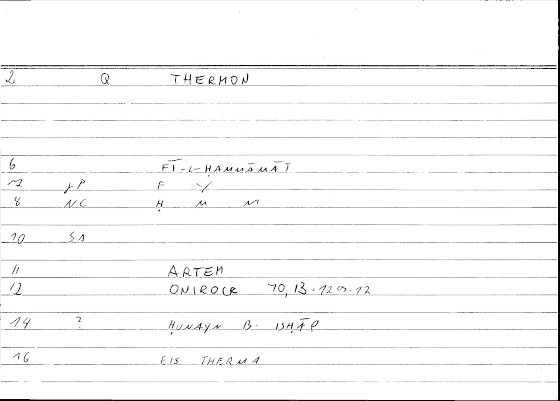 2 Q THERMON
6 FĪ-L-ḤAMMĀMĀT
7 gP F Y
8 NC Ḥ M M
10 SA
11 ARTEM
12 ONIROCR 70,13.1209.12
14 ? ḤUNAYN B. ISḤĀQ
16 EIS THERMA